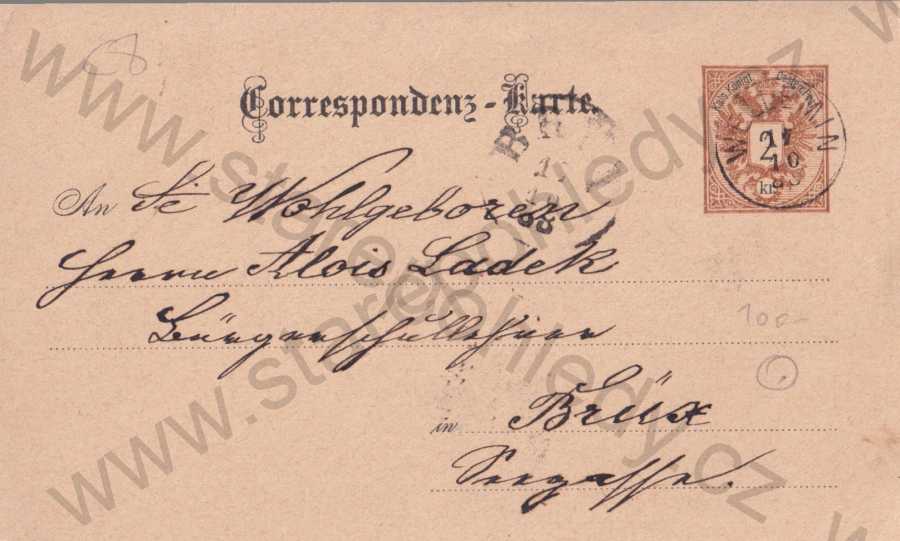 Correspondenz-Karte.
Kais. Königl. Oesterreich.
2
kr.
WELLEMIN
17
10
BRÜX
88
An Se Wohlgeboren
Herrn Alois Ladek
Bürgerschullehrer
in Brüx
Seegasse.
100-
www.starepohledy.cz
www.starepohledy.cz